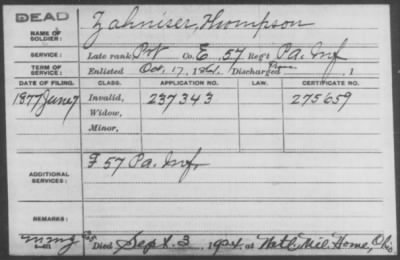 DEAD
NAME OF SOLDIER: Zahniser, Thompson
SERVICE: Late rank Pvt Co. E, 57 Reg't Pa. Inf
TERM OF SERVICE: Enlisted Oct. 17, 1861. Discharged , 1
DATE OF FILING. CLASS. APPLICATION NO. CERTIFICATE NO.
1877 June 7 Invalid, 237343 275659
Widow,
Minor,
ADDITIONAL SERVICES: F 57 Pa. Inf.
REMARKS:
Died Sept. 3, 1924, at Nat'l. Mil. Home, Ohio